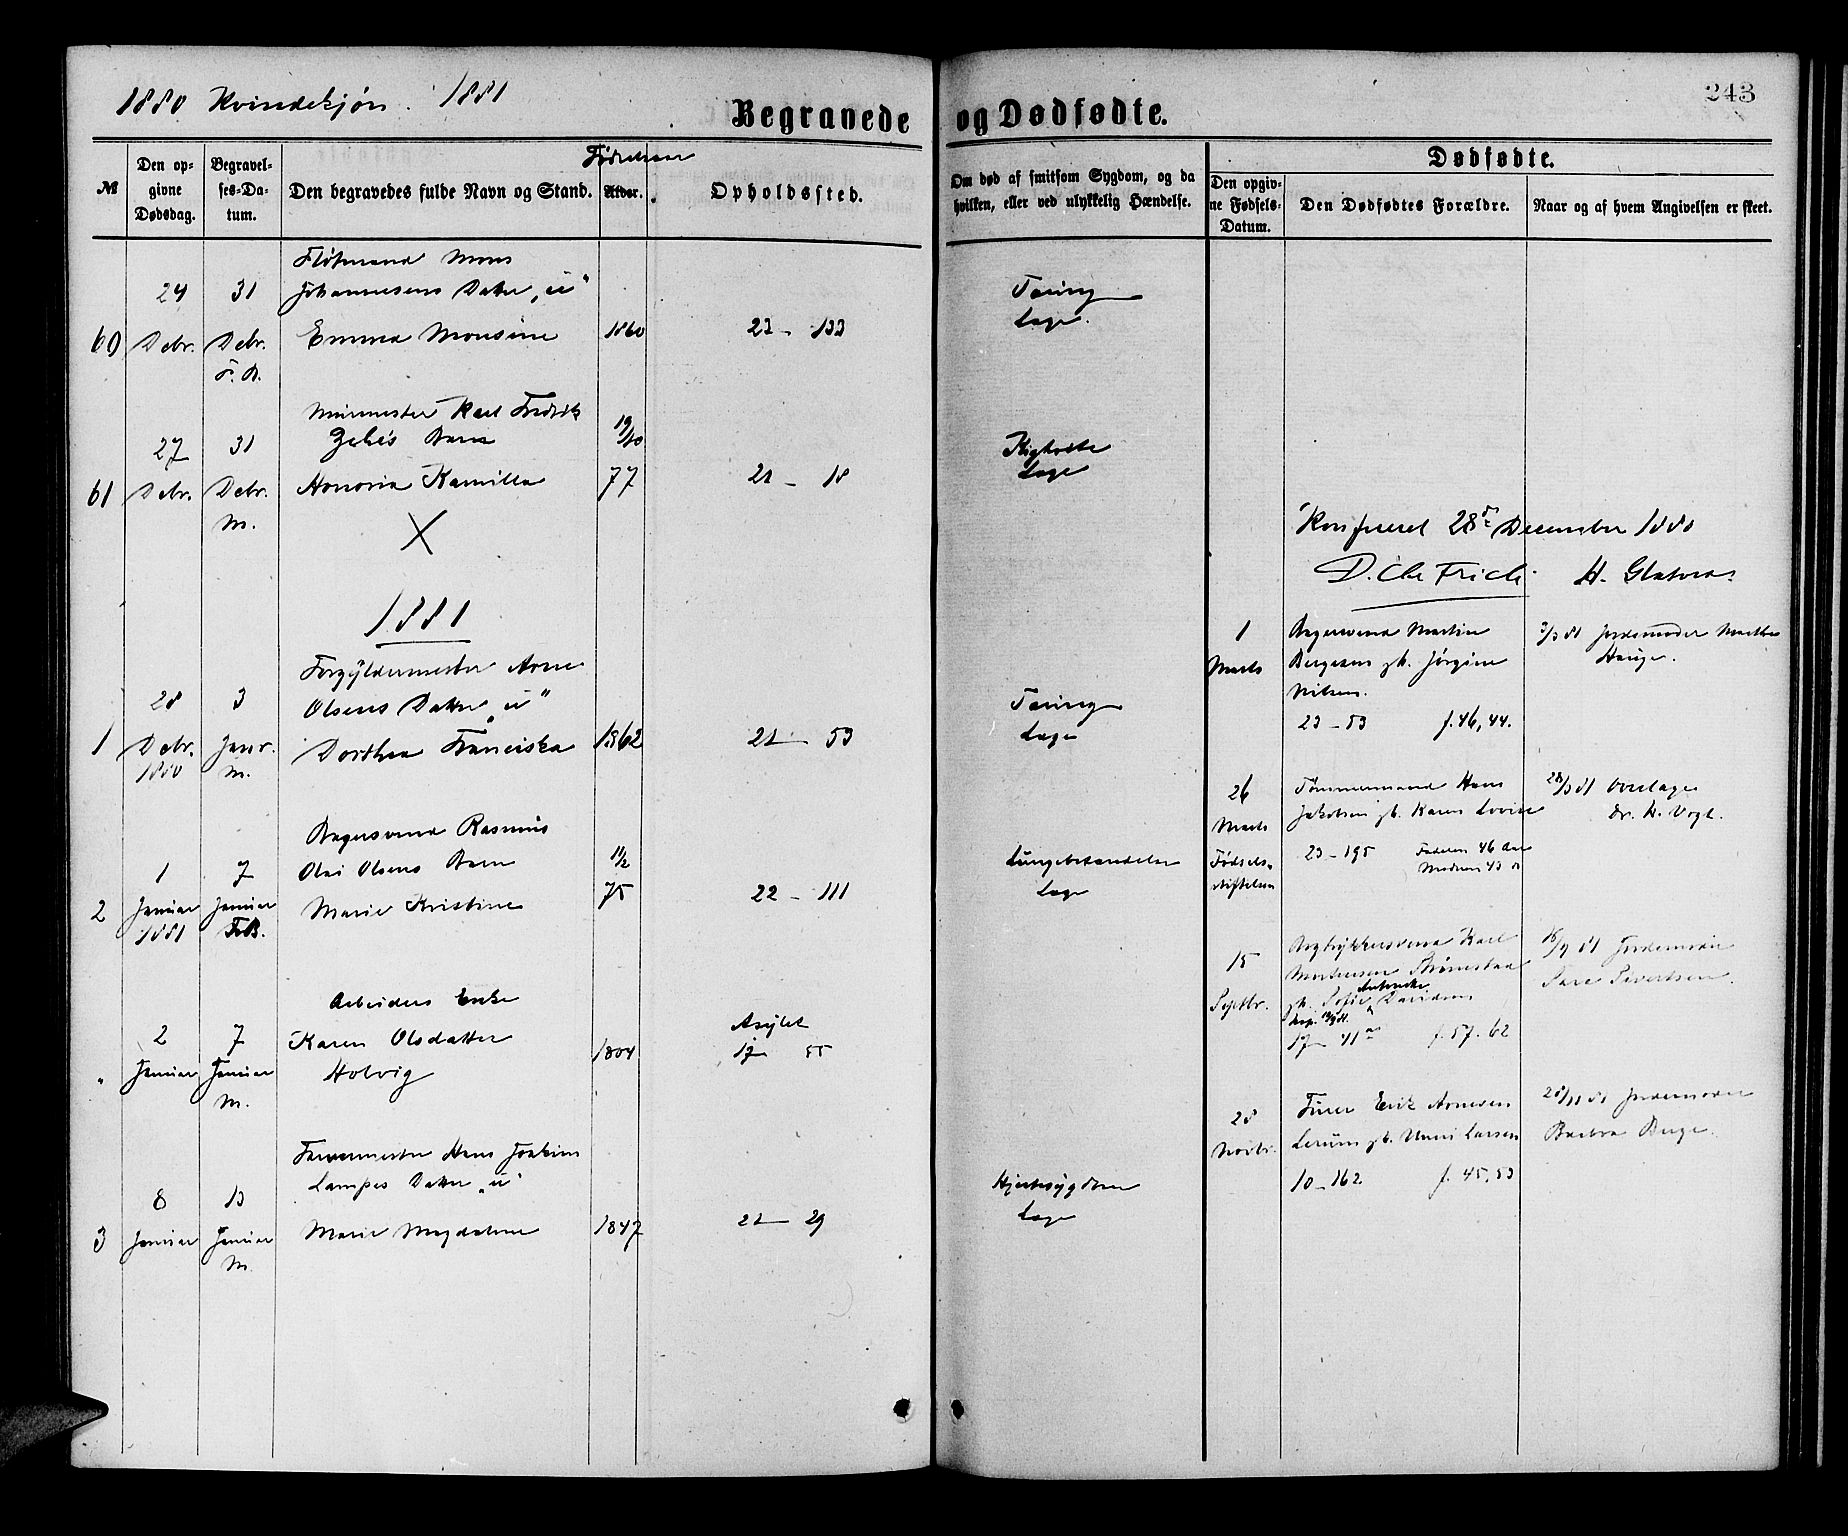 1880 Kvindekjøn. 1881
Begravede og Dødfødte.
243
№
Den opgivne Dødsdag.
Begravelses-Datum.
Den begravedes fulde Navn og Stand.
Fødselsaar
Alder.
Opholdssted.
Om død af smitsom Sygdom, og da hvilken, eller ved ulykkelig Hændelse.
Dødfødte.
Den opgivne Fødsels-Datum.
Den Dødfødtes Forældre.
Naar og af hvem Angivelsen er skeet.
60
24 Debr.
31 Debr.
Mons
Johannesens Datter „u“
Emma Monsine
1860
23 - 133
Tæring
Læge.
61
27 Debr.
31 Debr. M.
Murmester Karl Fredrik
Barn
Honoria Kamilla
19/10 77
21 - 18
Kighoste
Læge
X
1881
1
28 Debr. 1880
3 Janr. M.
Forgyldermester Arne
Olsens Datter „u“
Dorthea Franciska
1862
21 - 53
Tæring
Læge
2
1 Januar 1881
7 Januar
Bagersvend Rasmus
Olai Olsens Barn
Marie Kristine
11/2 75
22 - 111
Lungebetændelse
Læge
"
2 Januar
7 Januar M.
Arbeiders Enke
Karen Olsdatter
Holvig
1804
Asylet
17 55
3
8 Januar
13 Januar M.
Farvermester Hans Joakim
Lampes Datter „u“
Marie Magdalene
1847
21 - 29
Hjertesygdom
Læge
Konfereret 28de December 1880
1 Marts
Bagersvend Martin
Bergesen gb. Jørgine
Nilsen.
23 - 53 f. 46, 44.
3/3 81 Jordemoder Marthe
Hauge.
26 Marts
Fødselsstiftelsen
Tømmermand Hans
Jakobsen gb. Karen Lovise
23 - 195 Faderen 46 Aar
Moderen 43
28/3 81 Overlæge
Dr. H. Vogt.
15 Septbr.
Bogtrykkersvend Karl
Mortensen
gb. Sofie Antonette Davidsen
17 - 41 f. 57. 62
16/9 81 Jordemoder
Sara Sivertsen.
28 Novbr.
Furer Erik Arnesen
Lerum gb. Unni Larsen
10 - 162 f. 45, 53
28/11 81 Jordemoder
Barbra Berge.